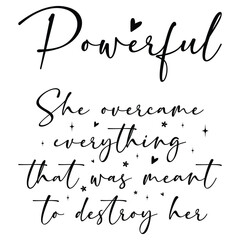 Powerful
She overcame
everything
that was meant
to destroy her